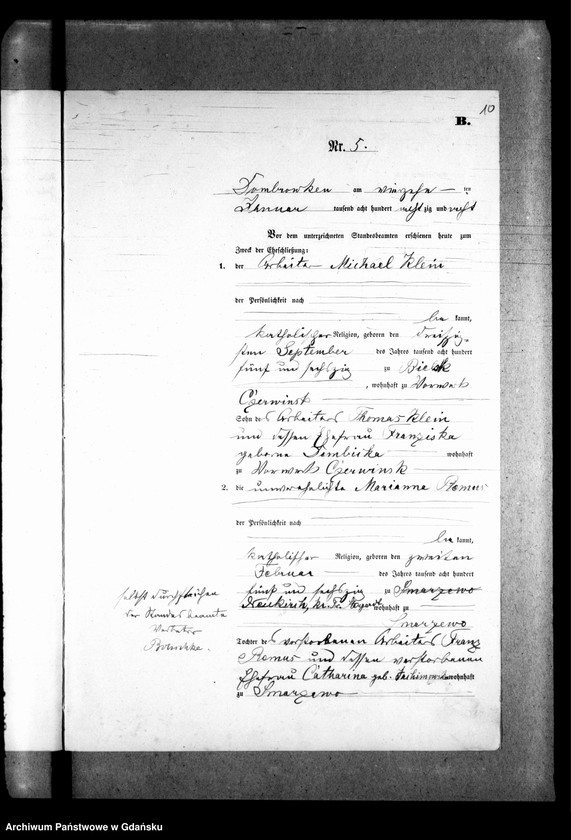 10
B.
Nr. 5.
Dombrowken am vierzehn ten
Januar tausend acht hundert acht zig und acht
Vor dem unterzeichneten Standesbeamten erschienen heute zum
Zweck der Eheschließung:
1. der Arbeiter Michael Klein
der Persönlichkeit nach
be kannt,
katholischer Religion, geboren den dreißig-
sten September des Jahres tausend acht hundert
fünf und sechszig zu Bielsk
, wohnhaft zu Vorwerk
Czerwinsk
Sohn des Arbeiters Thomas Klein
und dessen Ehefrau Franziska
geborne wohnhaft
zu Vorwerk Czerwinsk
2. die unverehelichte Marianna Remus
der Persönlichkeit nach
be kannt,
katholischer Religion, geboren den zweiten
Februar des Jahres tausend acht hundert
fünf und sechszig zu Smarzewo
Neukirch, wohnhaft zu
Smarzewo
Tochter des verstorbenen Arbeiters Franz
Remus und dessen verstorbenen
Ehefrau Catharina geb. wohnhaft
zu Smarzewo
durchstrichen
der Standesbeamte
Archiwum Państwowe w Gdańsku